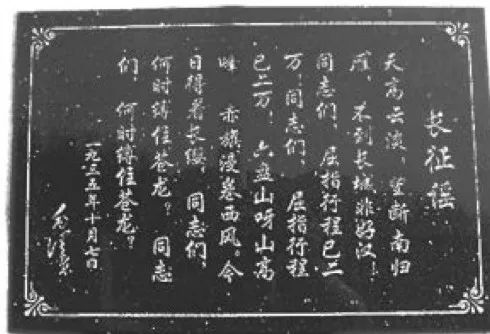 长征谣
天高云淡，望断南归
雁，不到长城非好汉！
同志们，屈指行程已二
万！同志们，屈指行程
已二万！六盘山呀山高
峰 赤旗漫卷西风。今
日得着长缨，同志们，
何时缚住苍龙？同志
们，何时缚住苍龙？
一九三五年十月七日
毛泽东